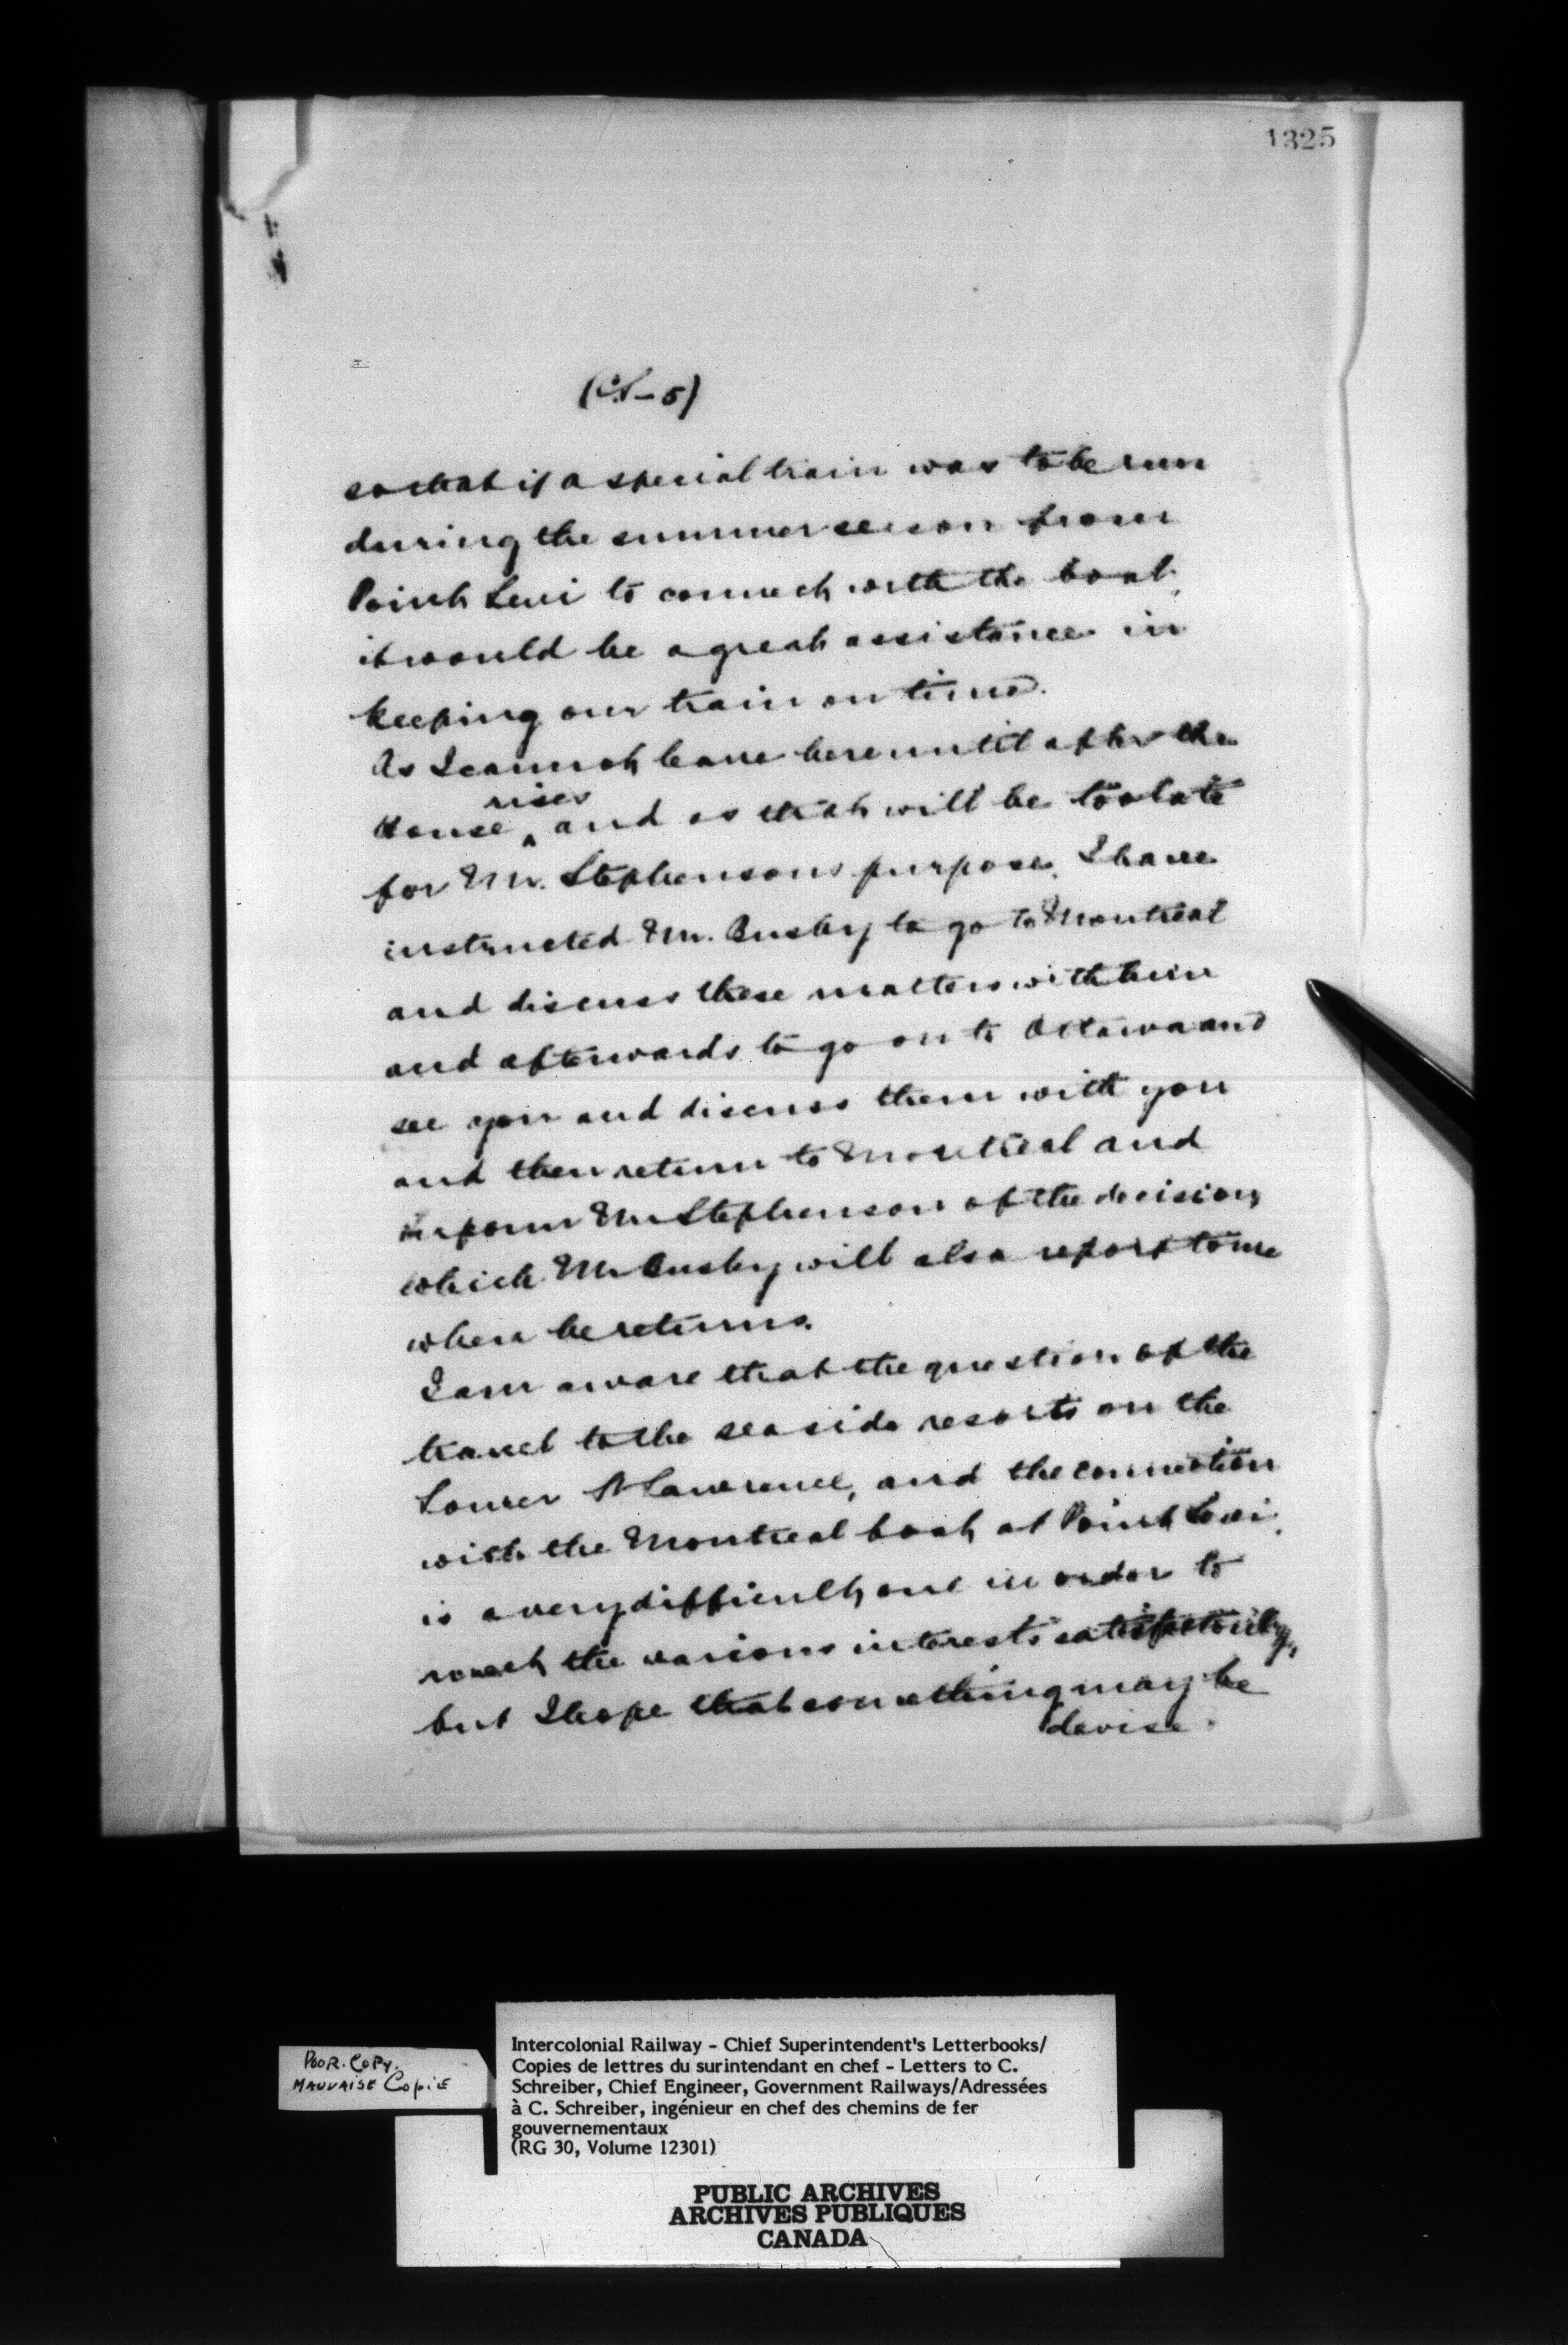 1325
(C.S-5)
so that if a special train was to be run
during the summer season from
Point Levi to connect with the boat,
it would be a great assistance in
keeping our train on time.
As I cannot leave here until after the
rises
House ^ and as that will be too late
for Mr. Stephensons purpose, I have
instructed Mr. Busby to go to Montreal
and discuss these matters with him
and afterwards to go on to Ottawa and
see you and discuss them with you
and then return to Montreal and
inform Mr Stephenson of the decision,
which Mr Busby will also report to me
when he returns.
I am aware that the question of the
travel to the seaside resorts on the
Lower St Lawrence, and the connection
with the Montreal boat at Point Levi,
is a very difficult one in order to
the various interests satisfactorily,
but I hope that something may be
devise.
POOR. COPY.
MAUVAISE COPIE
Intercolonial Railway - Chief Superintendent's Letterbooks/
Copies de lettres du surintendant en chef - Letters to C.
Schreiber, Chief Engineer, Government Railways/Adressées
à C. Schreiber, ingénieur en chef des chemins de fer
gouvernementaux
(RG 30, Volume 12301)
PUBLIC ARCHIVES
ARCHIVES PUBLIQUES
CANADA